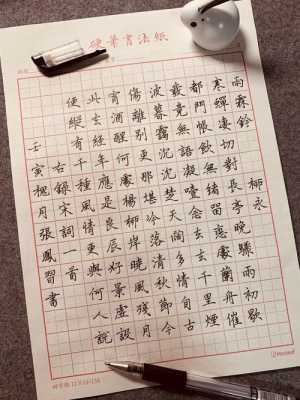 硬筆書法紙
雨霖鈴 柳永
寒蟬淒切對長亭晚驟雨初歇
都門帳飲無緒留戀處蘭舟催
發竟無語凝噎念去去千里煙
波暮靄沉沉楚天闊多情自古
傷離別更那堪冷落清秋節今
宵酒醒何處楊柳岸曉風殘月
此去經年應是良辰好景虛設
便縱有千種風情更與何人說
右錄宋詞一首
壬寅槐月張鳳習書